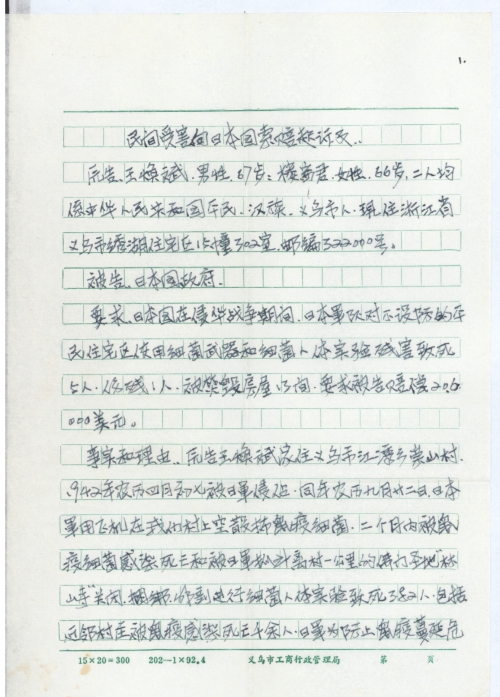 1.
民间受害向日本国索赔起诉文..
原告.王焕斌.男性.67岁;楼茜君.女性.66岁,二人均
係中华人民共和国平民.汉族.义乌市人.现住浙江省
义乌市绣湖住宅区15幢302室.邮编322000号。
被告.日本国政府.
要求.日本国在侵华战争期间.日本军队对不设防的平
民住宅区使用细菌武器和细菌人体实验残害致死
5人.伤残1人.被焚毁房屋15间.要求被告赔偿206
000美元。
事实和理由..原告王焕斌家住义乌市江湾乡崇山村.
1942年农历四月初七被日军侵佔.同年农历九月廿二日.日本
军用飞机在我们村上空散播鼠疫细菌.二个月内被鼠
疫细菌感染死亡和被日军抓到离村一公里的佛门圣地"林
山寺"关闭.捆绑.作剖进行细菌人体实验致死了382人.包括
近邻村庄被鼠疫感染死亡千余人.日军为防止鼠疫蔓延危
15×20=300 202—1×92.4 义乌市工商行政管理局 第 页